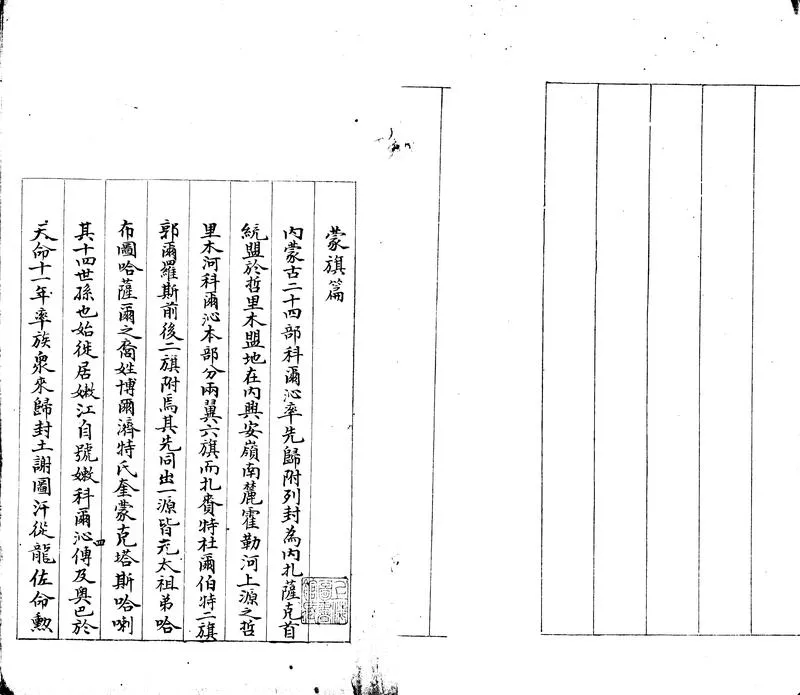 蒙旗篇
內蒙古二十四部科爾沁率先歸附列封為內札薩克首
統盟於哲里木盟地在內興安嶺南麓霍勒河上源之哲
里木河科爾沁本部分兩翼六旗而扎賚特杜爾伯特二旗
郭爾羅斯前後二旗附焉其先同出一源皆元太祖弟哈
布圖哈薩爾之裔姓博爾濟特氏奎蒙克塔斯哈喇
其十四世孫也始徙居嫩江自號嫩科爾沁四傳及奧巴於
天命十一年率族衆來歸封土謝圖汗從龍佐命勳